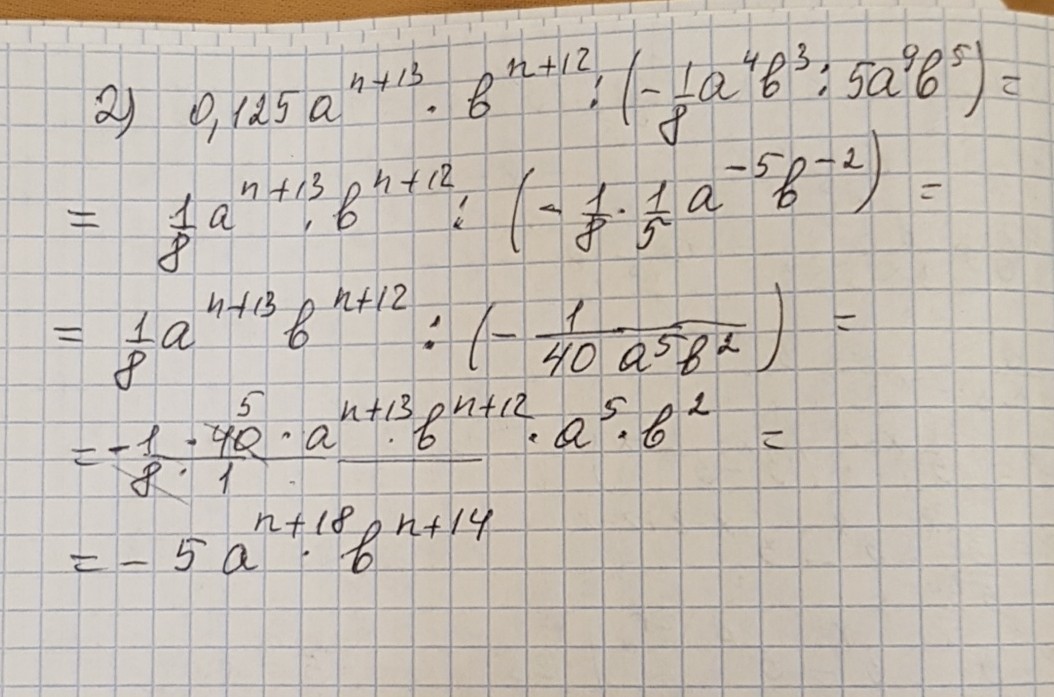 2) 0,125 a^{n+13} · b^{n+12} : (-\frac{1}{8} a^4 b^3 : 5a^9 b^5) =
= \frac{1}{8} a^{n+13} · b^{n+12} : (-\frac{1}{8} · \frac{1}{5} a^{-5} b^{-2}) =
= \frac{1}{8} a^{n+13} b^{n+12} : (-\frac{1}{40 a^5 b^2}) =
= \frac{-1 · \overset{5}{40} · a^{n+13} · b^{n+12}}{8 · 1} · a^5 · b^2 =
= - 5 a^{n+18} · b^{n+14}